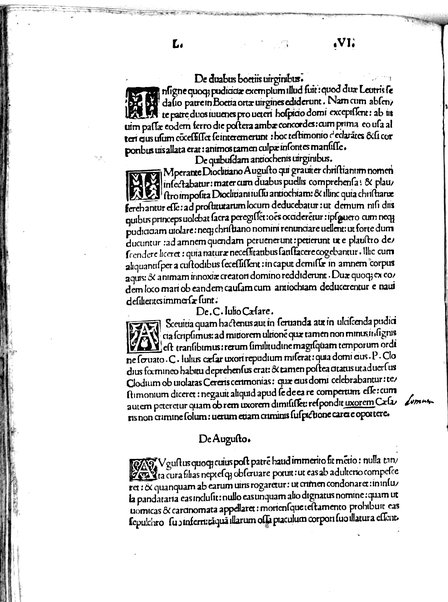 L. .VI.
De duabus boetiis uirginibus.
INsigne quoq; pudicitiæ exemplum illud fuit: quod duæ Leutris se
dasio patre in Boetia ortæ uirgines ediderunt. Nam cum absen
te patre duos iuuenes pro ueteri hospicio domi excepissent: ab iis
uim passæ eodem ferro die postera ambæ concordes: cum prima eo usa al
teri eius usum cōcessisset se interemerunt: hoc testimonio declarātes &si cor
poribus uis allata erat: animos tamen culpæ insontes mansisse.
De quibusdam antiochenis uirginibus.
IMperante Dioclitiano Augusto qui grauiter christianum nomen
insectabatur: mater cum duabus puellis comprehensa: & plau
stro imposita Dioclitiani iussu antiochiam: & illinc quia christianæ
ferebantur esse: ad prostitutarum locum deducebatur: ut demum nisi diis
quibus princeps uolebat sacra peregisset: oēs occiderētur: ipse uero cum neq;
pudicitiam uiolare: neq; christiano nomini renunciare uellent: ut forte dum
ducuntur: ad amnem quendam peruenerunt: petierunt ut e plaustro de
scendere liceret: quia naturæ necessitatibus satisfacere cogebantur. Illic cum
aliquantisper a custodibus secessissent: in caput demissæ in amnem corpus
aquis: & animam innoxiæ creatori domino reddiderunt. Duæ quoq; ex eo
dem loco mari ob eandem causam cum antiochiam deducerentur e naui
desilientes immersæ sunt.
De .C. Iulio Cæsare.
ASceuitia quam hactenus aut in seruanda aut in ulciscenda pudici
tia scripsimus: ad mitiorem ultionē quæ tamen non minus insignis
est transibimus: rerum similitudine magisquam temporum ordi
ne seruato. C. Iulius cæsar uxori repudium miserat: quia domi eius .P. Clo
dius fœmineo habitu deprehensus erat: & tamen postea citatus ut aduersus
Clodium ob uiolatas Cereris cerimonias: quæ eius domi celebrabantur: te
stimonium diceret: negauit aliquid apud se de ea re compertum esse: cum
autem peteretur quam ob rem uxorem dimisisset: respondit uxorem Cæsa
ris non crimine solum: uerum etiam criminis suspitione carere oportere.
De Augusto.
AVgustus quoq; cuius post patrē haud immerito fit mētio: nulla tin
ta cura filias neptesq; obseruare potuit: ut eas ab adulterio compesce
ret: & quanquam ab earum uiris rogaretur: ut crimen condonaret: in insu
la pandataria eas inclusit: nullo eas unquam alio dignatus nomine: quam ut
uomicas & carcinomata appellaret: moriensque testamento prohibuit eas
sepulchro suo inferri: tāquā illarum ossa piaculum corpori suo illatura essent.